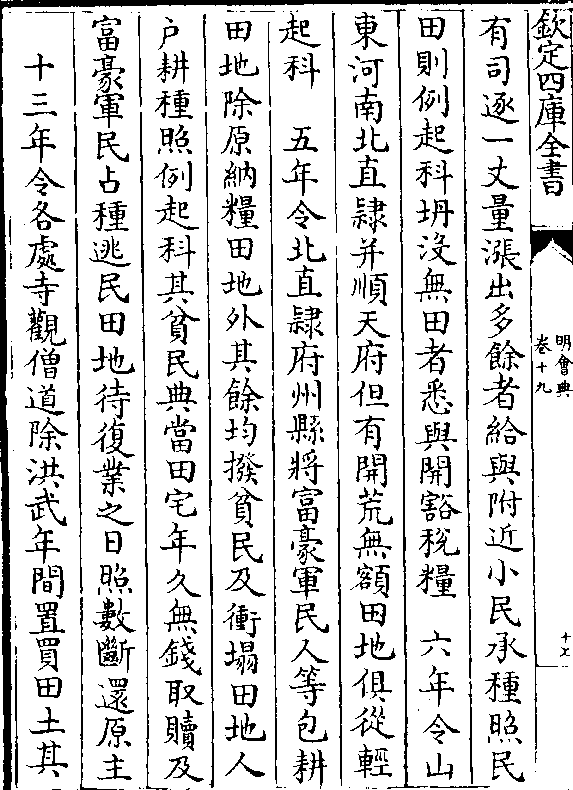 欽定四庫全書
明會典
卷十九
十七
有司逐一丈量漲出多餘者給與附近小民承種照民
田則例起科坍沒無田者悉與開豁稅糧　六年令山
東河南北直隸并順天府但有開荒無額田地俱從輕
起科　五年令北直隸府州縣將富豪軍民人等包耕
田地除原納糧田地外其餘均撥貧民及衝塌田地人
戶耕種照例起科其貧民典當田宅年久無錢取贖及
富豪軍民占種逃民田地待復業之日照數斷還原主
十三年令各處寺觀僧道除洪武年間置買田土其